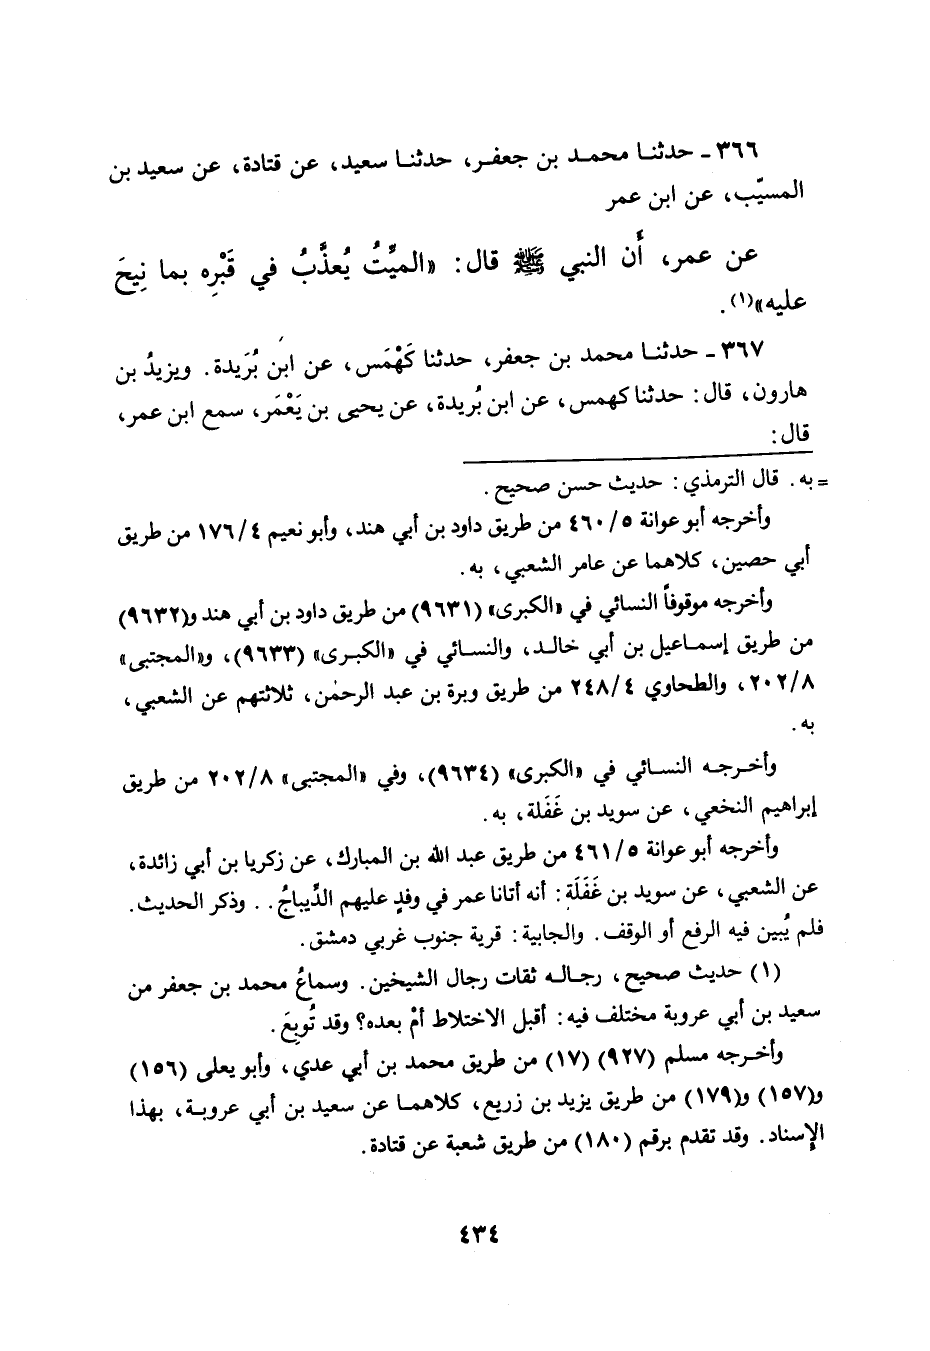 ٣٦٦ ـ حدثنـا محمـد بن جعفـر، حدثنـا سعيد، عن قتادة، عن سعيد بن
المسيّب، عن ابن عمر
عن عمر، أَن النبي ﷺ قال: «الميِّتُ يُعذَّبُ في قَبْرِه بما نِيحَ
عليه»(١).
٣٦٧ ـ حدثنـا محمد بن جعفر، حدثنا كَهْمَس، عن ابن بُرَيدة. ويزيدُ بن
هارون، قال: حدثنا كهمس، عن ابن بُريدة، عن يحيى بن يَعْمَر، سمع ابن عمر،
قال:
= به. قال الترمذي: حديث حسن صحيح.
وأخرجه أبو عوانة ٤٦٠/٥ من طريق داود بن أبي هند، وأبو نعيم ١٧٦/٤ من طريق
أبي حصين، كلاهما عن عامر الشعبي، به.
وأخرجه موقوفاً النسائي في «الكبرى» (٩٦٣١) من طريق داود بن أبي هند و(٩٦٣٢)
من طريق إسمـاعيل بن أبي خالـد، والنسائي في «الكبـرى» (٩٦٣٣)، و«المجتبى»
٢٠٢/٨، والطحاوي ٢٤٨/٤ من طريق وبرة بن عبد الرحمٰن، ثلاثتهم عن الشعبي،
به.
وأخـرجـه النسـائي في «الكبرى» (٩٦٣٤)، وفي «المجتبى» ٢٠٢/٨ من طريق
إبراهيم النخعي، عن سويد بن غَفَلة، به.
وأخرجه أبو عوانة ٤٦١/٥ من طريق عبد الله بن المبارك، عن زكريا بن أبي زائدة،
عن الشعبي، عن سويد بن غَفَلَة: أنه أتانا عمر في وفدٍ عليهم الدِّيباجُ.. وذكر الحديث.
فلم يُبين فيه الرفع أو الوقف. والجابية: قرية جنوب غربي دمشق.
(١) حديث صحيح، رجـالـه ثقات رجال الشيخين. وسماعُ محمد بن جعفر من
سعيد بن أبي عروبة مختلف فيه: أقبل الاختلاط أمْ بعده؟ وقد تُوبِعَ.
وأخـرجه مسلم (٩٢٧) (١٧) من طريق محمد بن أبي عدي، وأبو يعلى (١٥٦)
و(١٥٧) و(١٧٩) من طريق يزيد بن زريع، كلاهمـا عن سعيد بن أبي عروبـة، بهذا
الإسناد. وقد تقدم برقم (١٨٠) من طريق شعبة عن قتادة.
٤٣٤